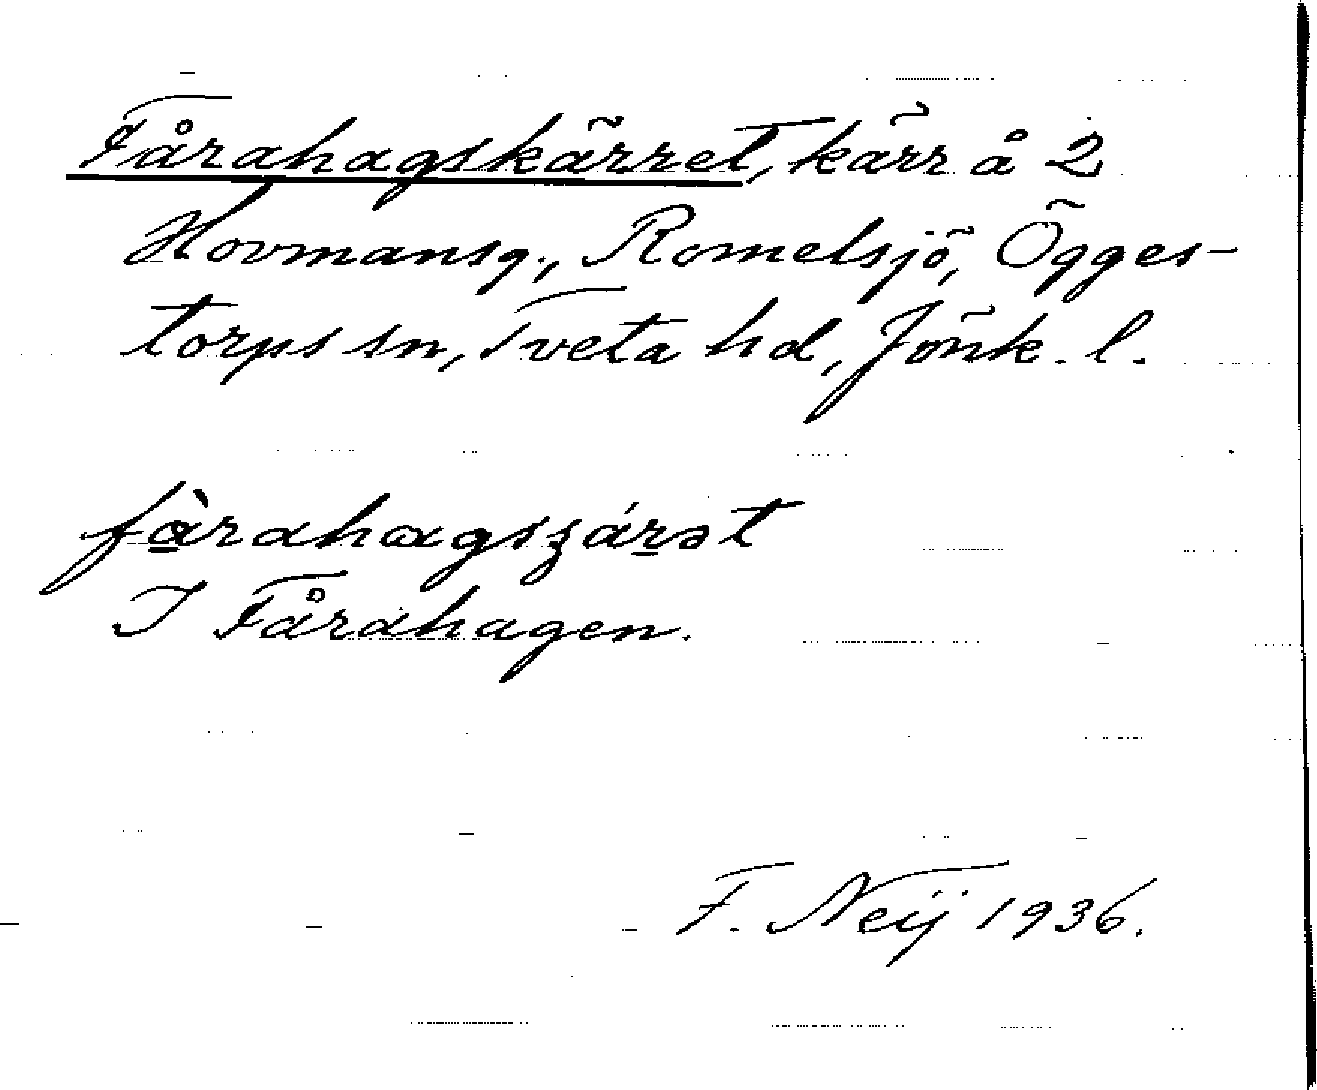 Fårahagskärret, kärr å 2
Hovmansg., Romelsjö, Ögges-
torps sn, Tveta hd, Jönk. l.
I Fårahagen.
F. Neij 1936.